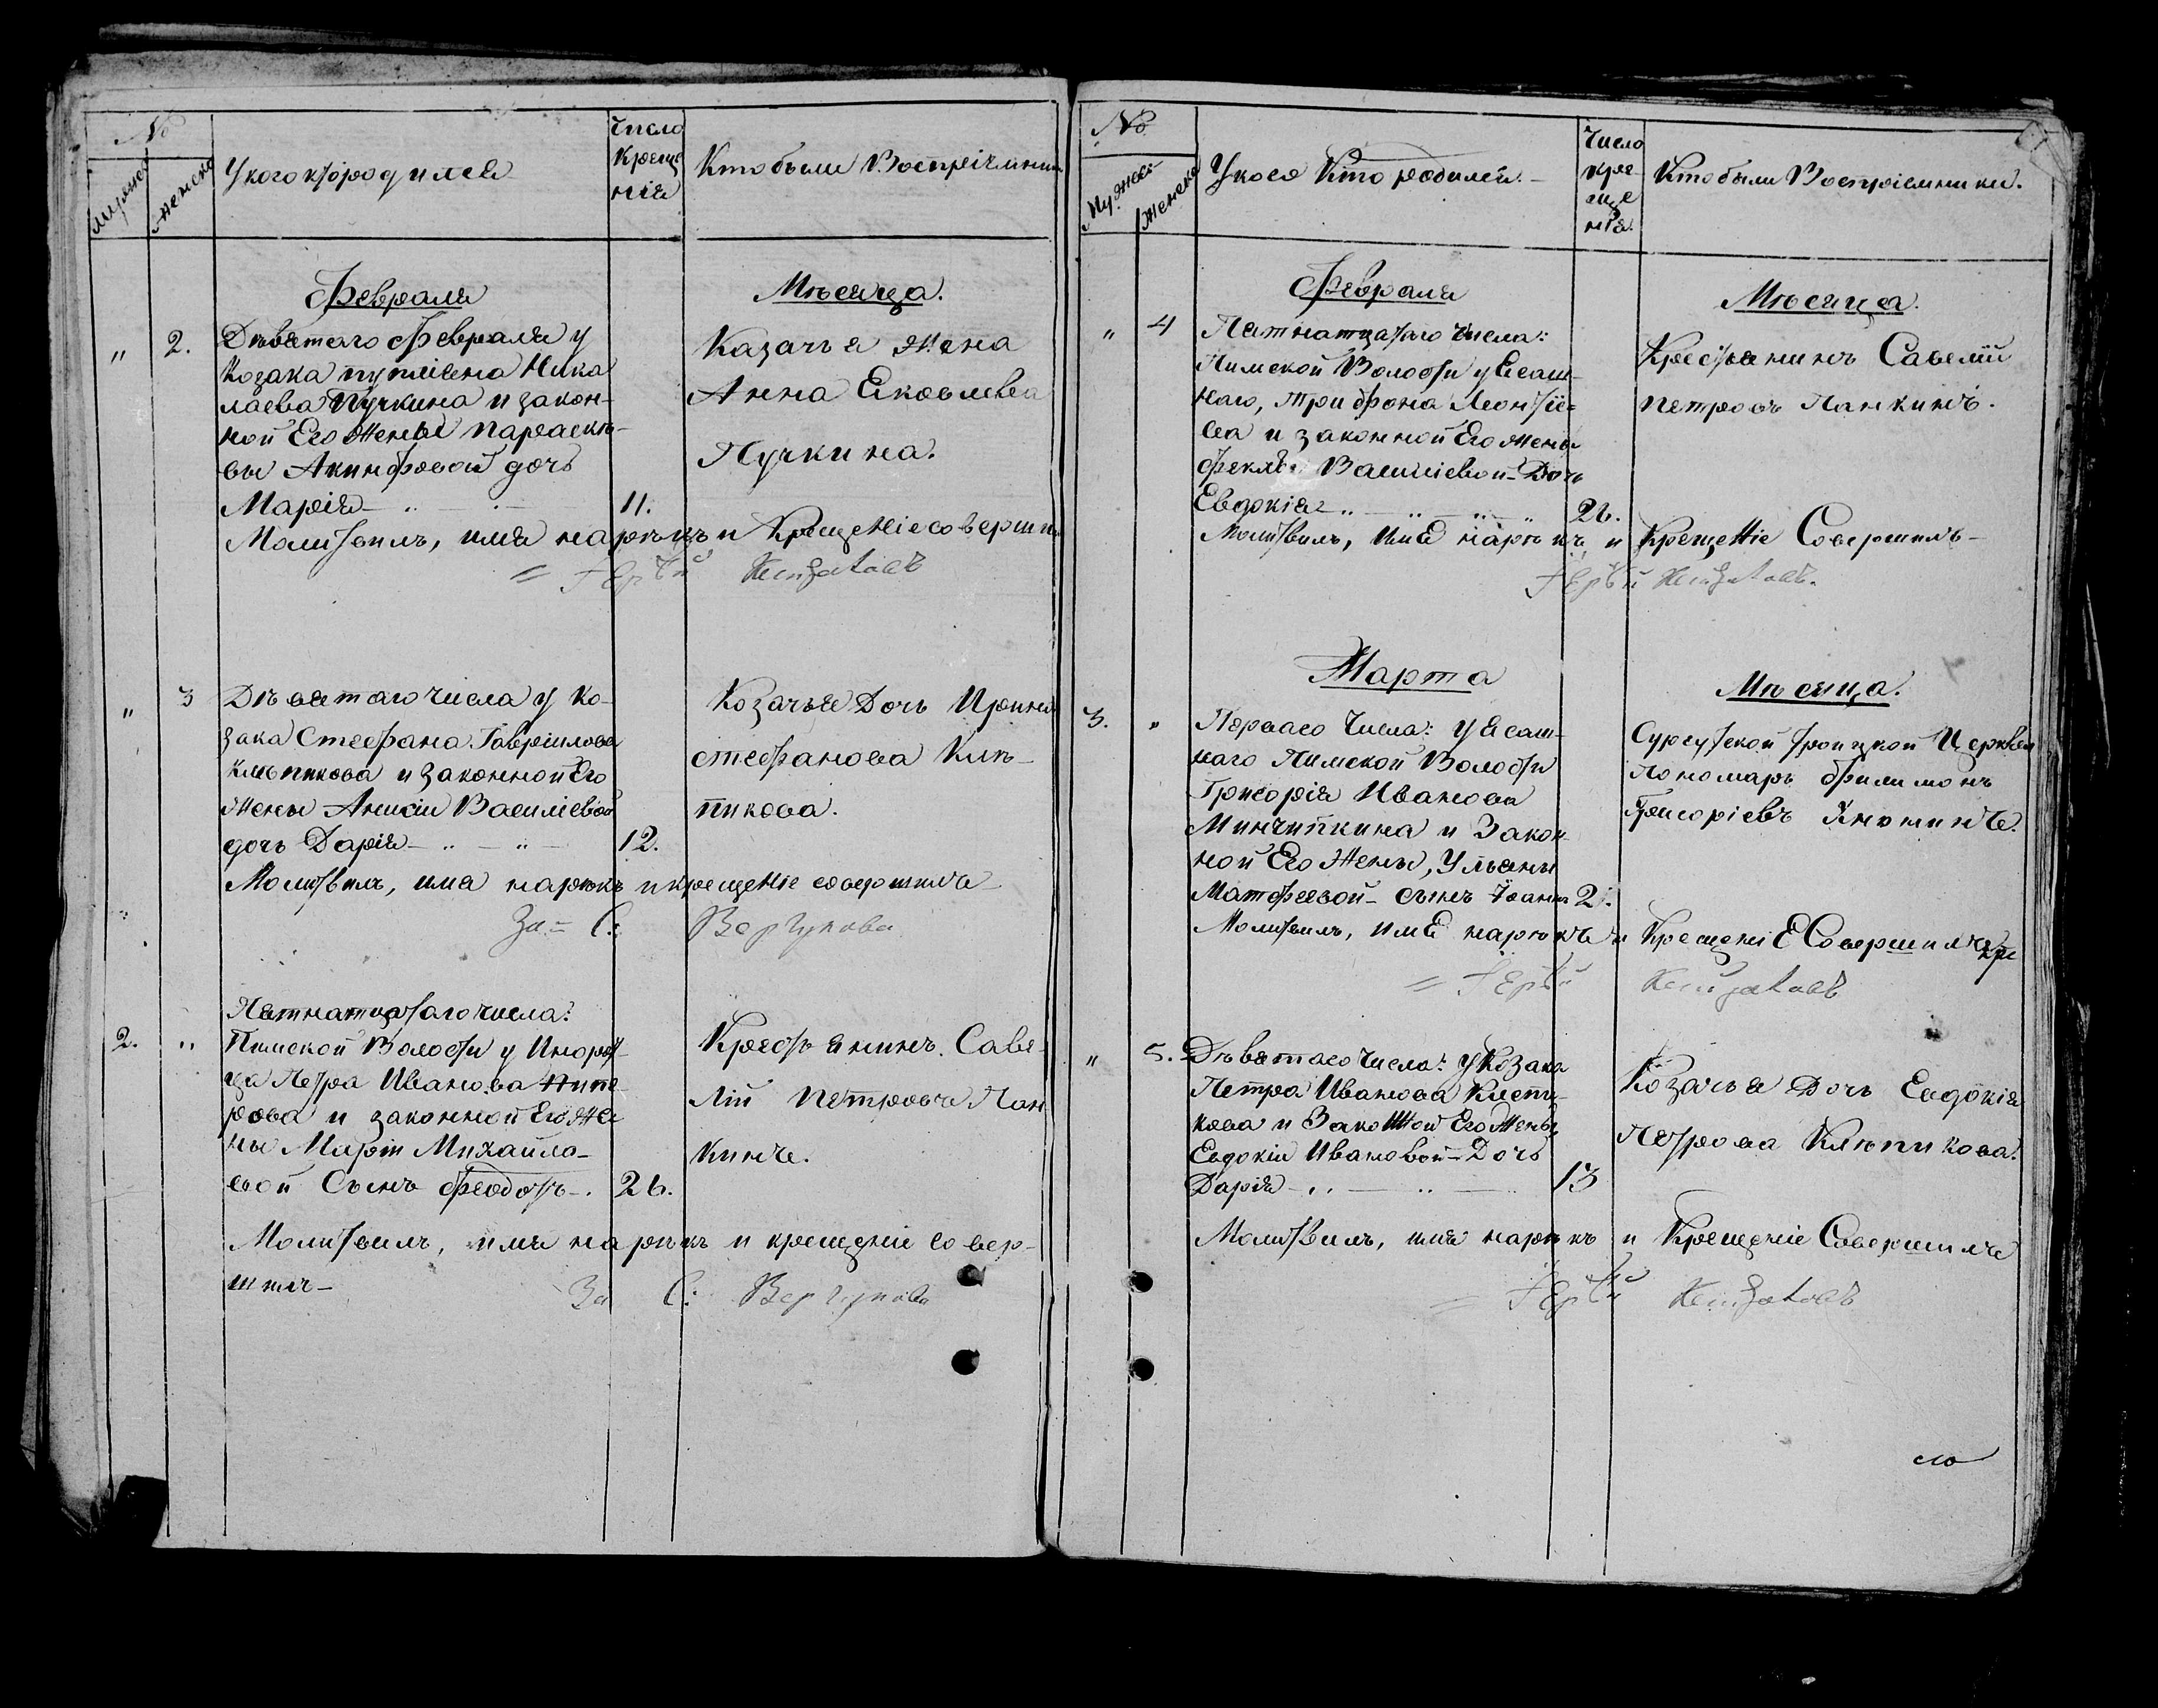 №
Мужеска
Женска
У кого кто родился
Число
Креще
нія
Кто были Воспріемники
Февраля
Мѣсяца.
" 2.
Дѣвятаго Февраля у
Козака Нико
лаева Пучкина и закон-
ной Его Жены Параскѣ-
вы Акинфовой дочь
Марія 11.
Казачья Жена
Анна Яковлева
Пучкина.
Молитвилъ, имя нарѣкъ и Крещеніе соверши
" 3
Дѣвятаго числа у Ко-
зака Стефана Гавріилова
Клѣпикова и законной Его
Жены Анисіи Василіевой
дочь Дарія 12.
Козачья Дочь Ирина
Стефанова Клѣ-
пикова.
Молитвилъ, имя нарѣкъ и крещеніе совершилъ
За С. Вергунова
2. "
Пятнатцатаго числа:
Пимской Волости у Инород-
ца Петра Иванова
и законной Его Же
ны Маріи Михайло-
вой Сынъ Феодотъ 26.
Крестьянинъ Саве-
лій Петровъ Пан-
кинъ.
Молитвилъ, имя нарѣкъ и крещеніе совер-
шилъ За С: Вергунова
№
Мужеск
Женска
У кого Кто родился.
Число
кре-
ще
нія.
Кто были Воспріемники.
Февраля
Мѣсяца.
" 4
Пятнатцатаго Числа:
Пимской Волости у Ясаш-
наго, Трифона Леонтіе-
ва и законной Его Жены
Феклы Василіевой Дочь
Евдокія 26.
Крестьянинъ Савелій
Петровъ Панкинъ.
Молитвилъ, имя нарѣкъ и Крещеніе Совершилъ
Марта
Мѣсяца.
3. "
Перваго Числа: у Ясаш-
наго Пимской Волости
Григорія Иванова
Минчипкина и Закон-
ной Его Жены, Ульяны
Матфеевой сынъ Іоаннъ 2.
Сургутской Троицкой Церкви
Пономарь Филимонъ
Григоріевъ
Молитвилъ, имя нарѣкъ и Крещеніе Совершилъ
" 5.
Дѣвятаго Числа: у Козака
Петра Иванова Клепи-
кова и Законной Его Жены
Евдокіи Ивановой Дочь
Дарія 13
Козачья Дочь Евдокія
Петрова Клѣпикова.
Молитвилъ, имя нарѣкъ и Крещеніе Совершилъ